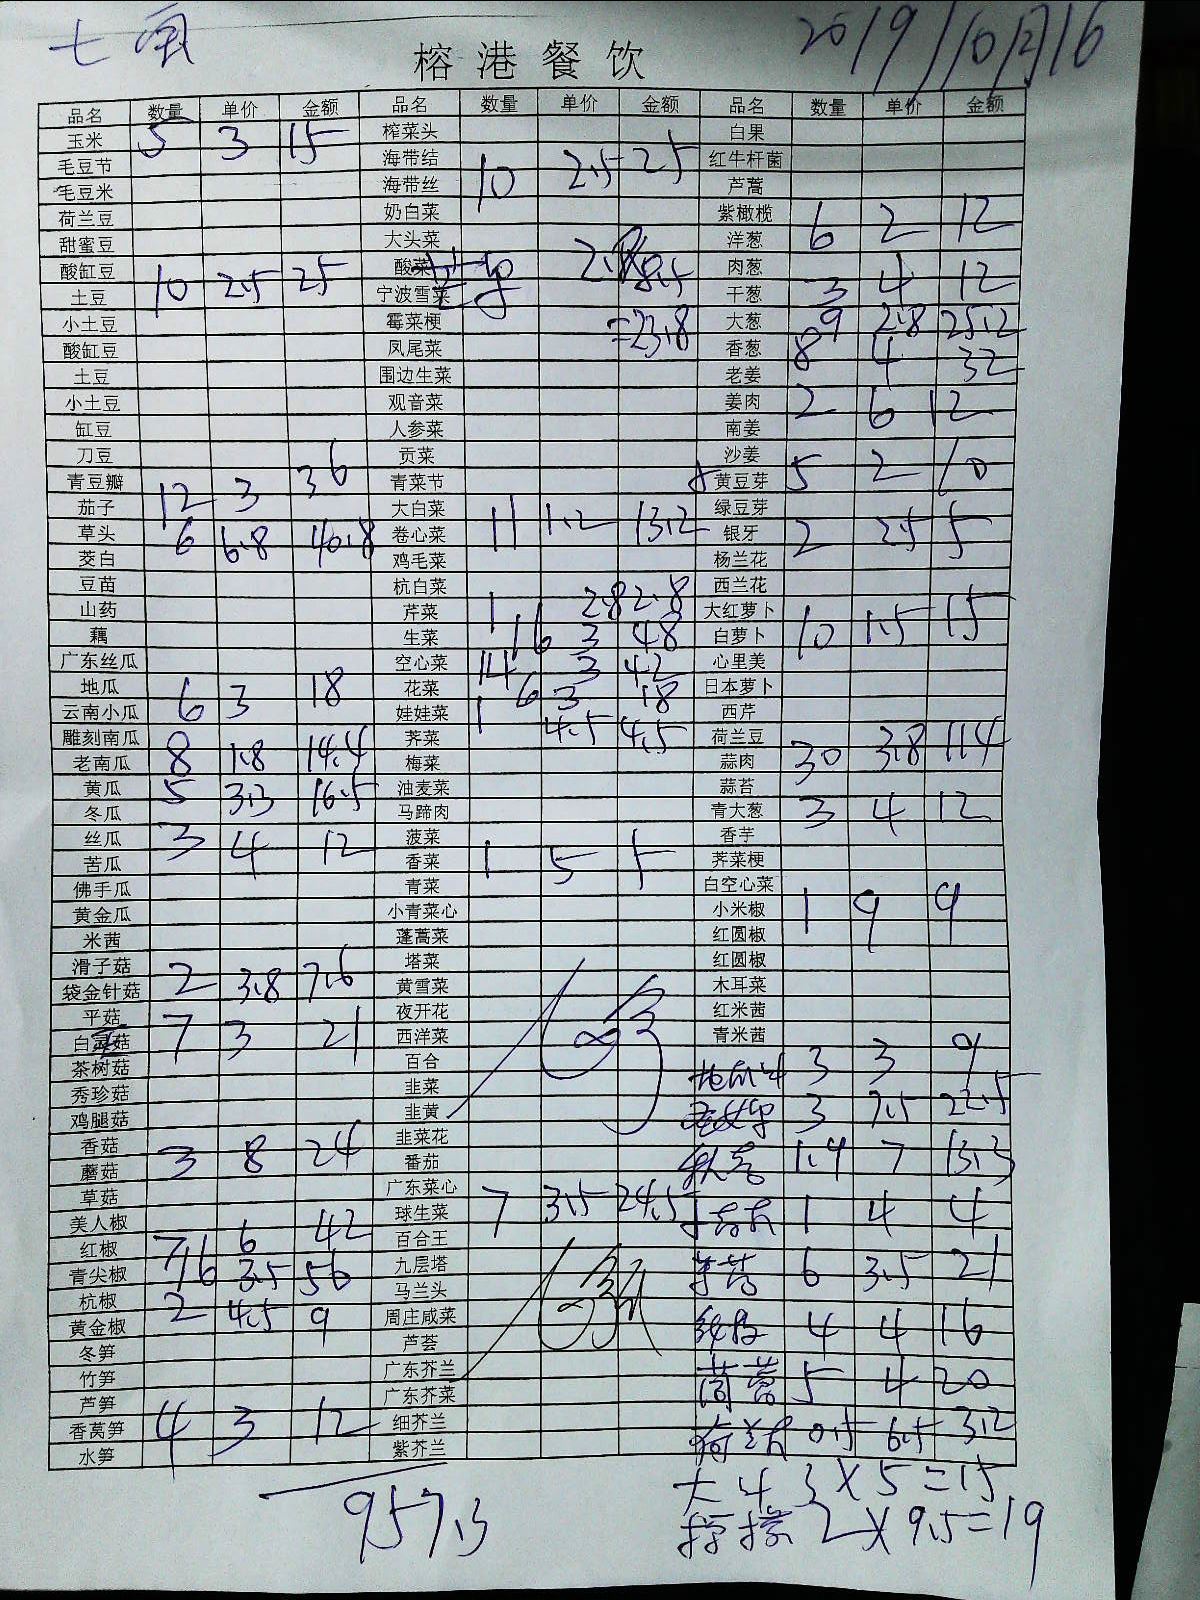 七
2019/10月16
榕港餐饮
品名 数量 单价 金额 品名 数量 单价 金额 品名 数量 单价 金额
玉米 5 3 15 榨菜头 白果
毛豆节 海带结 红牛杆菌
毛豆米 海带丝 10 2.5 25 芦蒿
荷兰豆 奶白菜 紫橄榄
甜蜜豆 大头菜 洋葱 6 2 12
酸缸豆 酸菜 肉葱
土豆 10 2.5 25 宁波雪菜 干葱 3 4 12
小土豆 霉菜梗 =23.8 大葱 9 2.8 25.2
酸缸豆 凤尾菜 香葱 8 4 32
土豆 围边生菜 老姜
小土豆 观音菜 姜肉 2 6 12
缸豆 人参菜 南姜
刀豆 贡菜 沙姜
青豆瓣 青菜节 黄豆芽 5 2 10
茄子 12 3 36 大白菜 绿豆芽
草头 6 6.8 40.8 卷心菜 11 1.2 13.2 银牙 2 2.5 5
茭白 鸡毛菜 杨兰花
豆苗 杭白菜 西兰花
山药 芹菜 1 2.8 2.8 大红萝卜
藕 生菜 16 3 48 白萝卜 10 1.5 15
广东丝瓜 空心菜 14 3 42 心里美
地瓜 花菜 6 3 18 日本萝卜
云南小瓜 6 3 18 娃娃菜 1 4.5 4.5 西芹
雕刻南瓜 荠菜 荷兰豆
老南瓜 8 1.8 14.4 梅菜 蒜肉 30 3.8 114
黄瓜 5 3.3 16.5 油麦菜 蒜苔
冬瓜 马蹄肉 青大葱 3 4 12
丝瓜 3 4 12 菠菜 香芋
苦瓜 香菜 1 5 5 荠菜梗
佛手瓜 青菜 白空心菜
黄金瓜 小青菜心 小米椒 1 9 9
米茜 蓬蒿菜 红圆椒
滑子菇 塔菜 红圆椒
袋金针菇 2 3.8 7.6 黄雪菜 木耳菜
平菇 夜开花 红米茜
白灵菇 7 3 21 西洋菜 青米茜
茶树菇 百合 3 3 9
秀珍菇 韭菜
鸡腿菇 韭黄 3 7.5 22.5
香菇 韭菜花
蘑菇 3 8 24 番茄 秋葵 1.9 7 13.3
草菇 广东菜心
美人椒 球生菜 7 3.5 24.5 1 4 4
红椒 7 6 42 百合王
青尖椒 16 3.5 56 九层塔 6 3.5 21
杭椒 2 4.5 9 马兰头
黄金椒 周庄咸菜 4 4 16
冬笋 芦荟
竹笋 广东芥兰 茼蒿 5 4 20
芦笋 广东芥菜
香莴笋 4 3 12 细芥兰 荷兰豆 0.5 6.5 3.2
水笋 紫芥兰
大 3×5=15
957.3
柠檬 2×9.5=19